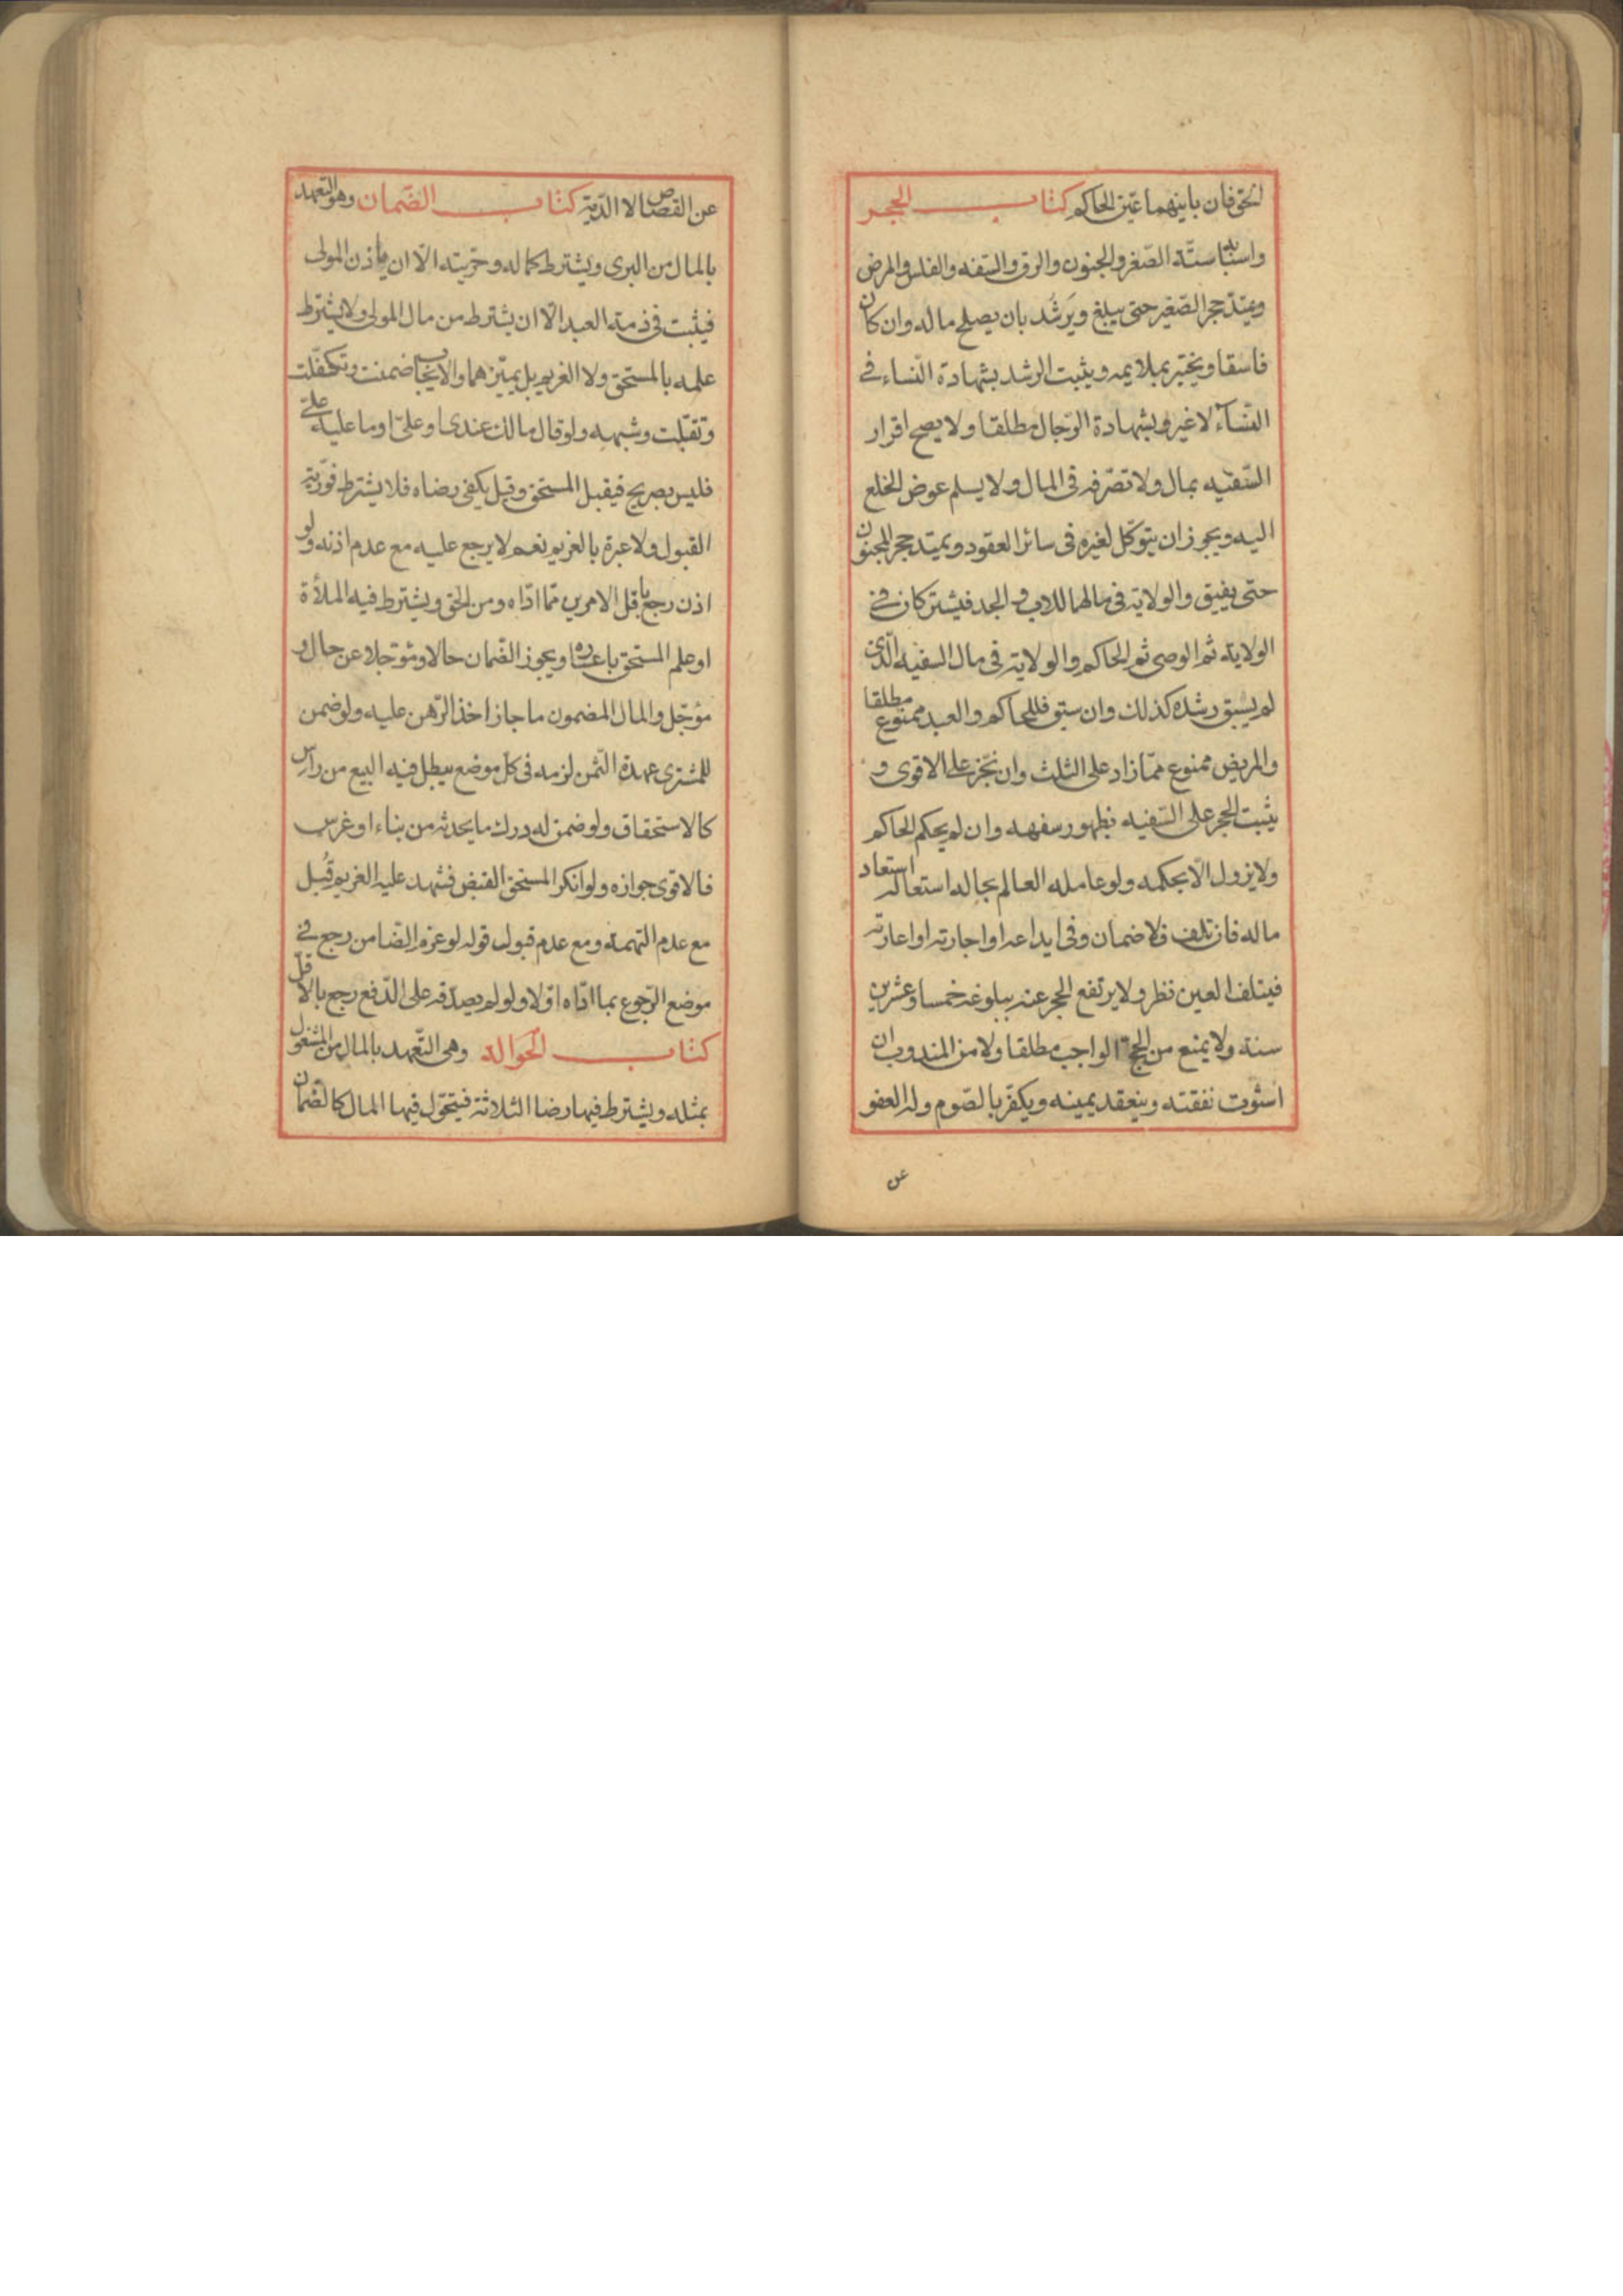 الحق فان باينهما عين الحاكم كتاب الحجر
واسبابه ستة الصغر والجنون والرق والسفه والفلس والمرض
ويمتد حجر الصغير حتى يبلغ ويَرشُد بان يصلح ماله وان كان
فاسقا ويختبر بملايمه ويثبت الرشد بشهادة النّساء في
النّسآء لا غير وبشهادة الرّجال مطلقا ولا يصح اقرار
السّفيه بمال ولا تصرّفه في المال ولا يسلم عوض الخلع
اليه ويجوز ان يتوكّل لغيره في سائر العقود ويمتد حجر المجنون
حتى يفيق والولاية في مالهما للاب والجد فيشتركان في
الولاية ثم الوصى ثم الحاكم والولاية في مال السفيه الّذى
لم يسبق رشده كذلك وان سبق فللحاكم والعبد ممنوع مطلقا
والمريض ممنوع ممّا زاد على الثلث وان نجّز على الاقوى و
يثبت الحجر على السّفيه بظهور سفهه وان لم يحكم الحاكم
ولا يزول الّا بحكمه ولو عامله العالم بحاله استعاد
ماله فان تلف فلا ضمان وفى ايداعه او اجارته او اعارته
فيتلف العين نظر ولا يرتفع الحجر عنه ببلوغه خمسا وعشرين
سنة ولا يمنع من الحج الواجب مطلقا ولا من المندوب ان
استوت نفقته وينعقد يمينه ويكفّر بالصّوم وله العفو
عن
عن القصاص لا الدّية كتاب الضّمان وهو التعهد
بالمال من البرى ويشترط كماله وحرّيته الّا ان ياذن المولى
فيثبت في ذمة العبد الّا ان يشترط من مال المولى ولا يشترط
علمه بالمستحق ولا الغريم بل تميّزهما والايجاب ضمنت وتكفّلت
وتقبّلت وشبهه ولو قال مالك عندى او علىّ او ما عليه علىّ
فليس بصريح فيقبل المستحق وقيل يكفى رضاه فلا يشترط فوريّة
القبول ولا عبرة بالغريم نعم لا يرجع عليه مع عدم اذنه ولو
اذن رجع باقل الامرين ممّا ادّاه ومن الحق ويشترط فيه الملأة
او علم المستحق باعساره ويجوز الضّمان حالا ومؤجلا عن حال و
مؤجّل والمال المضمون ما جاز اخذ الرّهن عليه ولو ضمن
للمشترى عهدة الثمن لزمه في كلّ موضع يبطل فيه البيع من راس
كالاستحقاق ولو ضمن له درك ما يحدثه من بناء او غرس
فالاقوى جوازه ولو انكر المستحق القبض فشهد عليه الغريم قُبل
مع عدم التهمة ومع عدم قبول قوله لو غرم الضامن رجع في
موضع الرّجوع بما ادّاه اوّلا ولو لم يصدّقه على الدّفع رجع بالاقلّ
كتاب الحوالة وهى التّعهد بالمال من المشغول
بمثله ويشترط فيها رضا الثلاثة فيتحوّل فيها المال كالضّمان